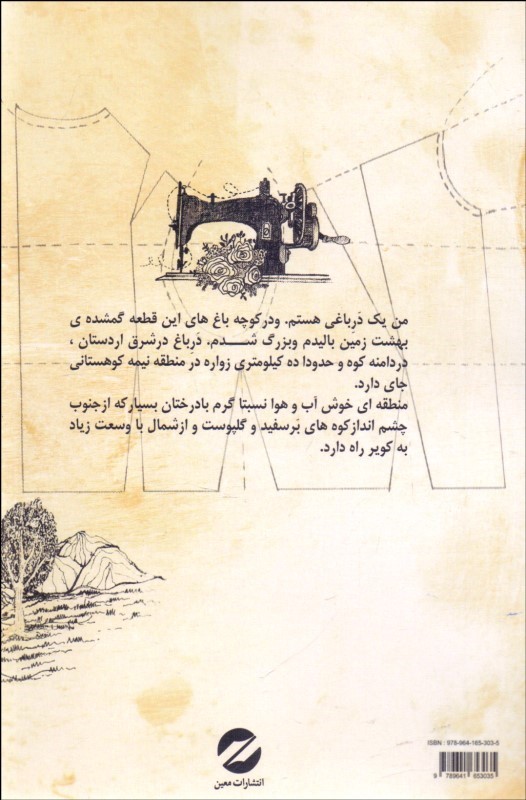 من یک دَرباغی هستم. ودرکوچه باغ های این قطعه گمشده ی
بهشت زمین بالیدم وبزرگ شـــدم. دَرِباغ درشرق اردستان ،
دردامنه کوه و حدودا ده کیلومتری زواره در منطقه نیمه کوهستانی
جای دارد.
منطقه ای خوش آب و هوا نسبتا گرم بادرختان بسیارکه ازجنوب
چشم اندازکوه های بَرسفید و گلپوست و ازشمال با وسعت زیاد
به کویر راه دارد.
انتشارات معین
ISBN : 978-964-165-303-5
9 789641 653035